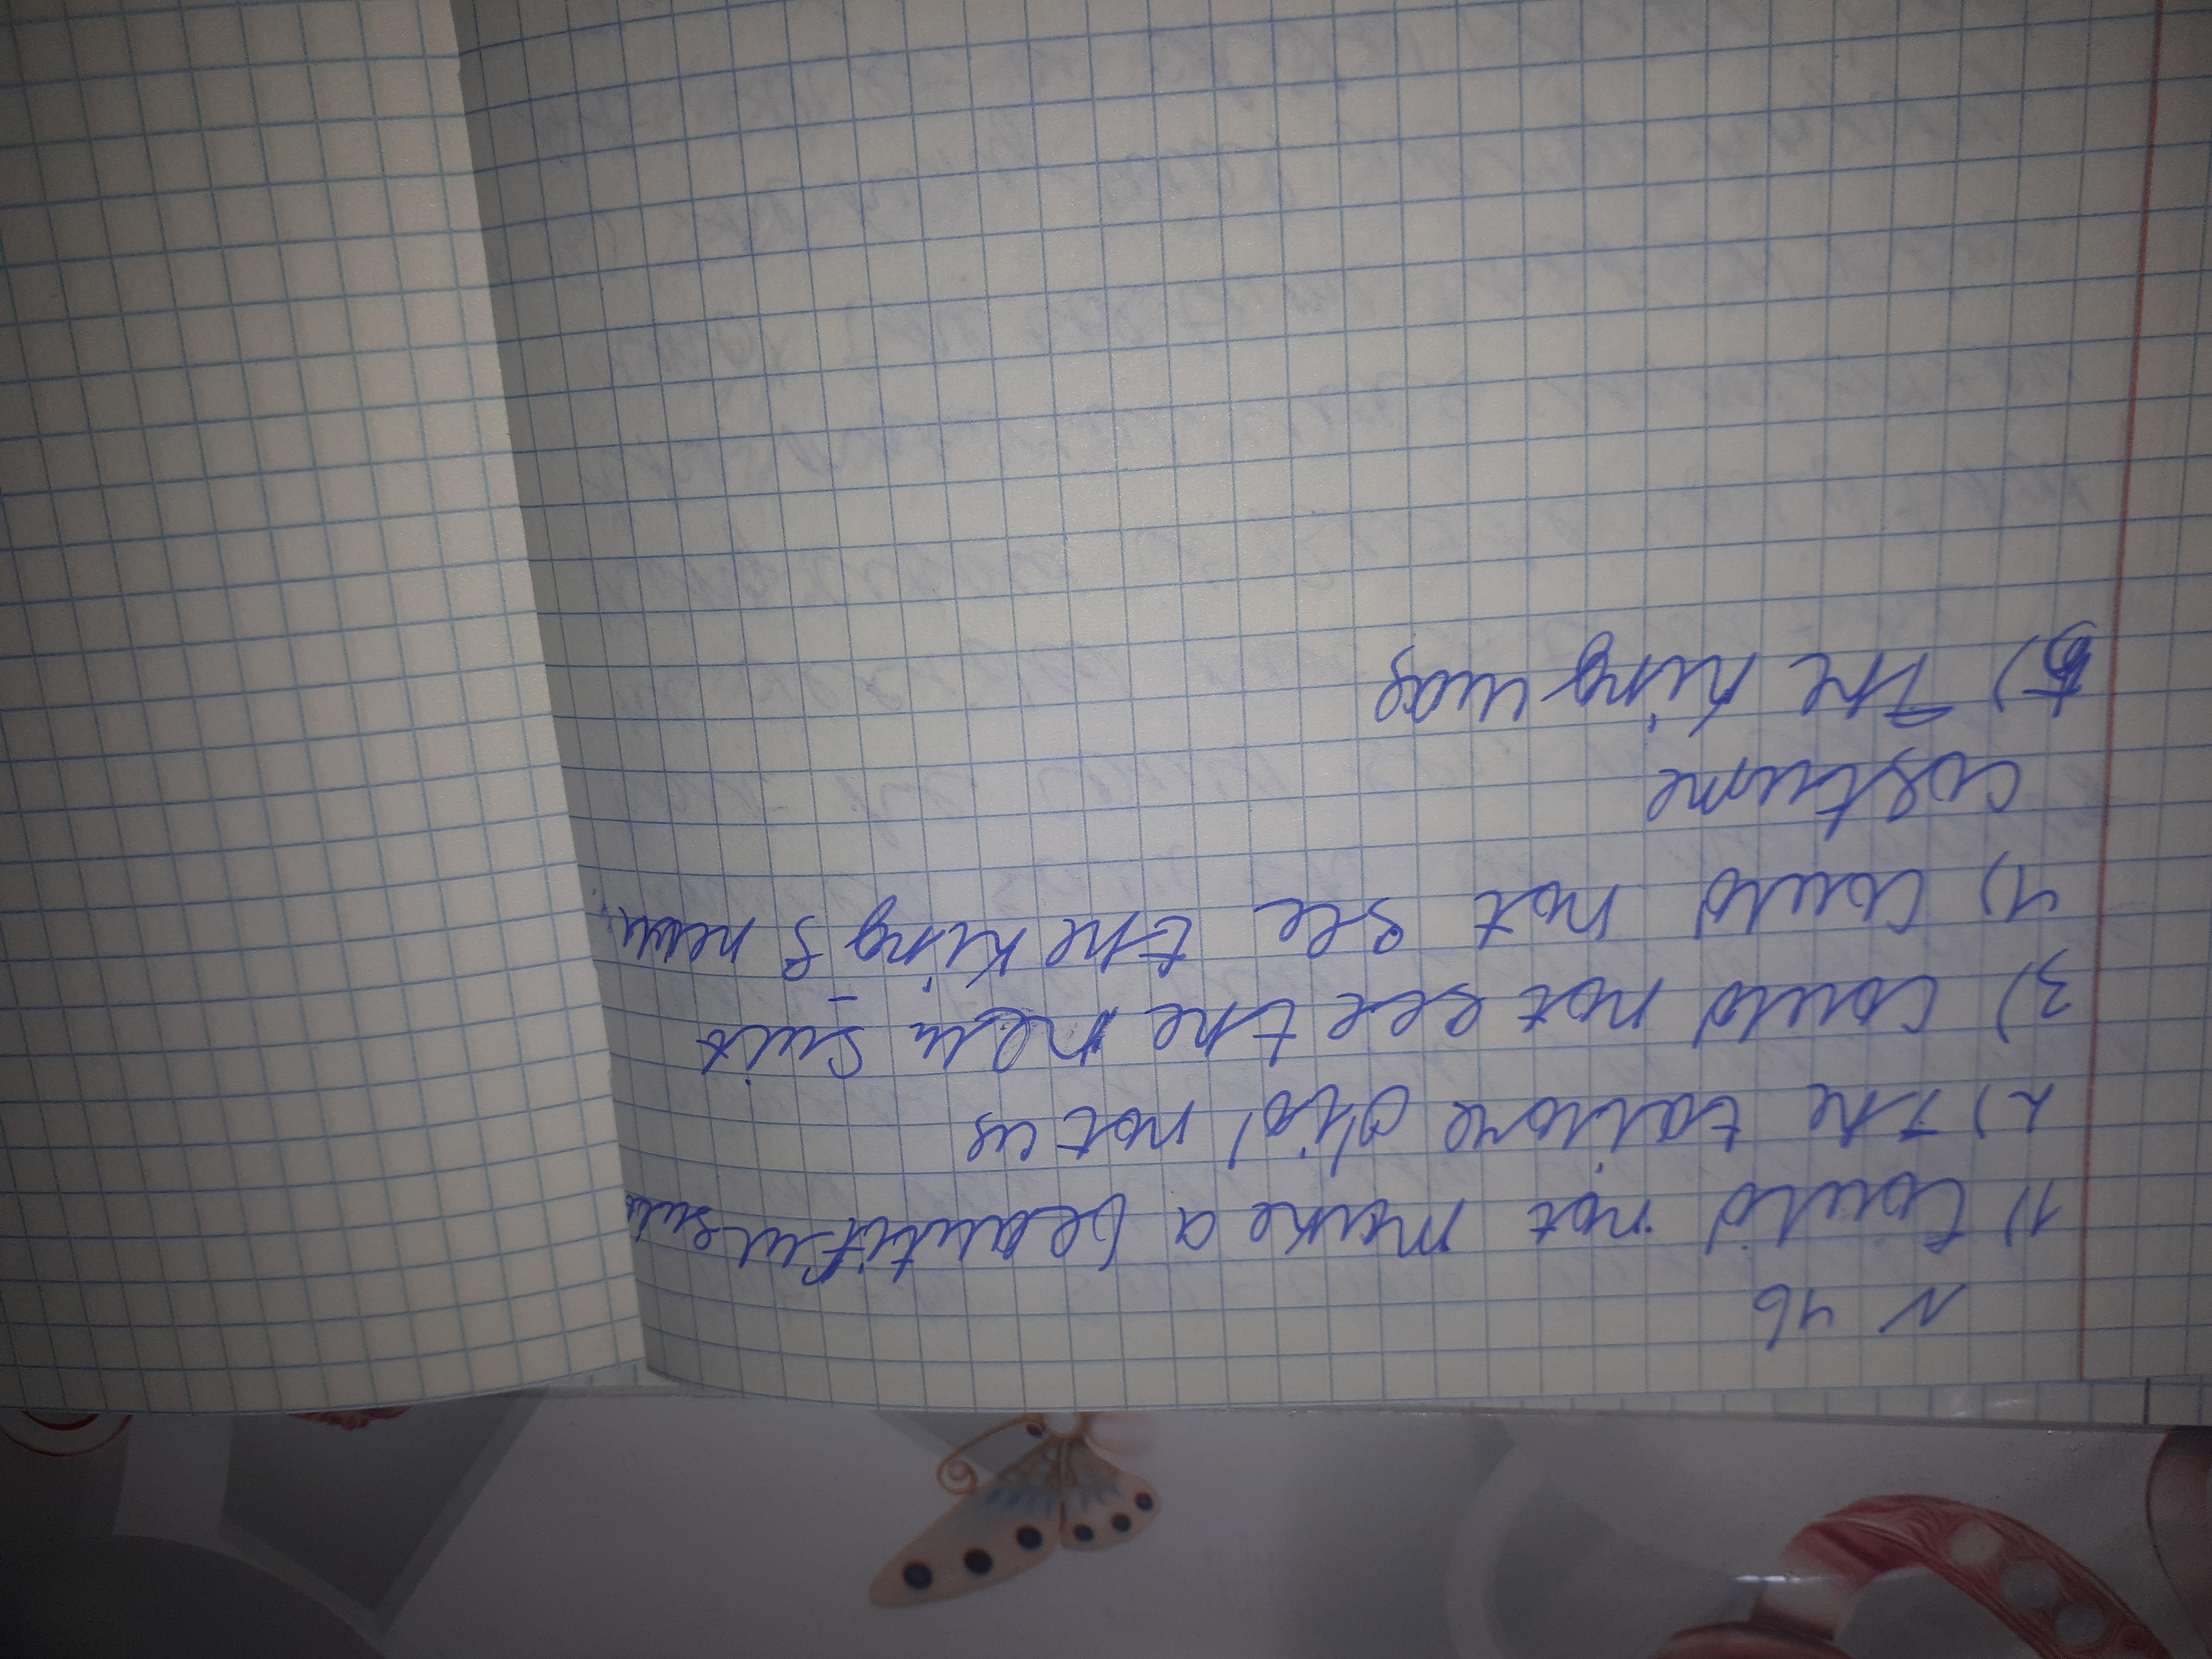 N 46
1) Could not make a beautiful
2) The tailore did not us
3) could not see the new suit
4) could not see the King's new
costume
5) The king was